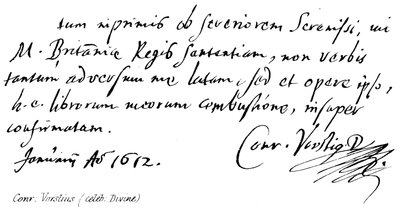 tum inprimis ob severiorem Serenissimi
M. Britañiæ Regis Sententiam, non verbis
tantum adversum me latam, sed et opere ipso,
h.e. librorum meorum combustione, insuper
confirmatam.
Januarij Aº 1612.
Conr. Vorstius D.
Conr. Vorstius (celeb. Divine)